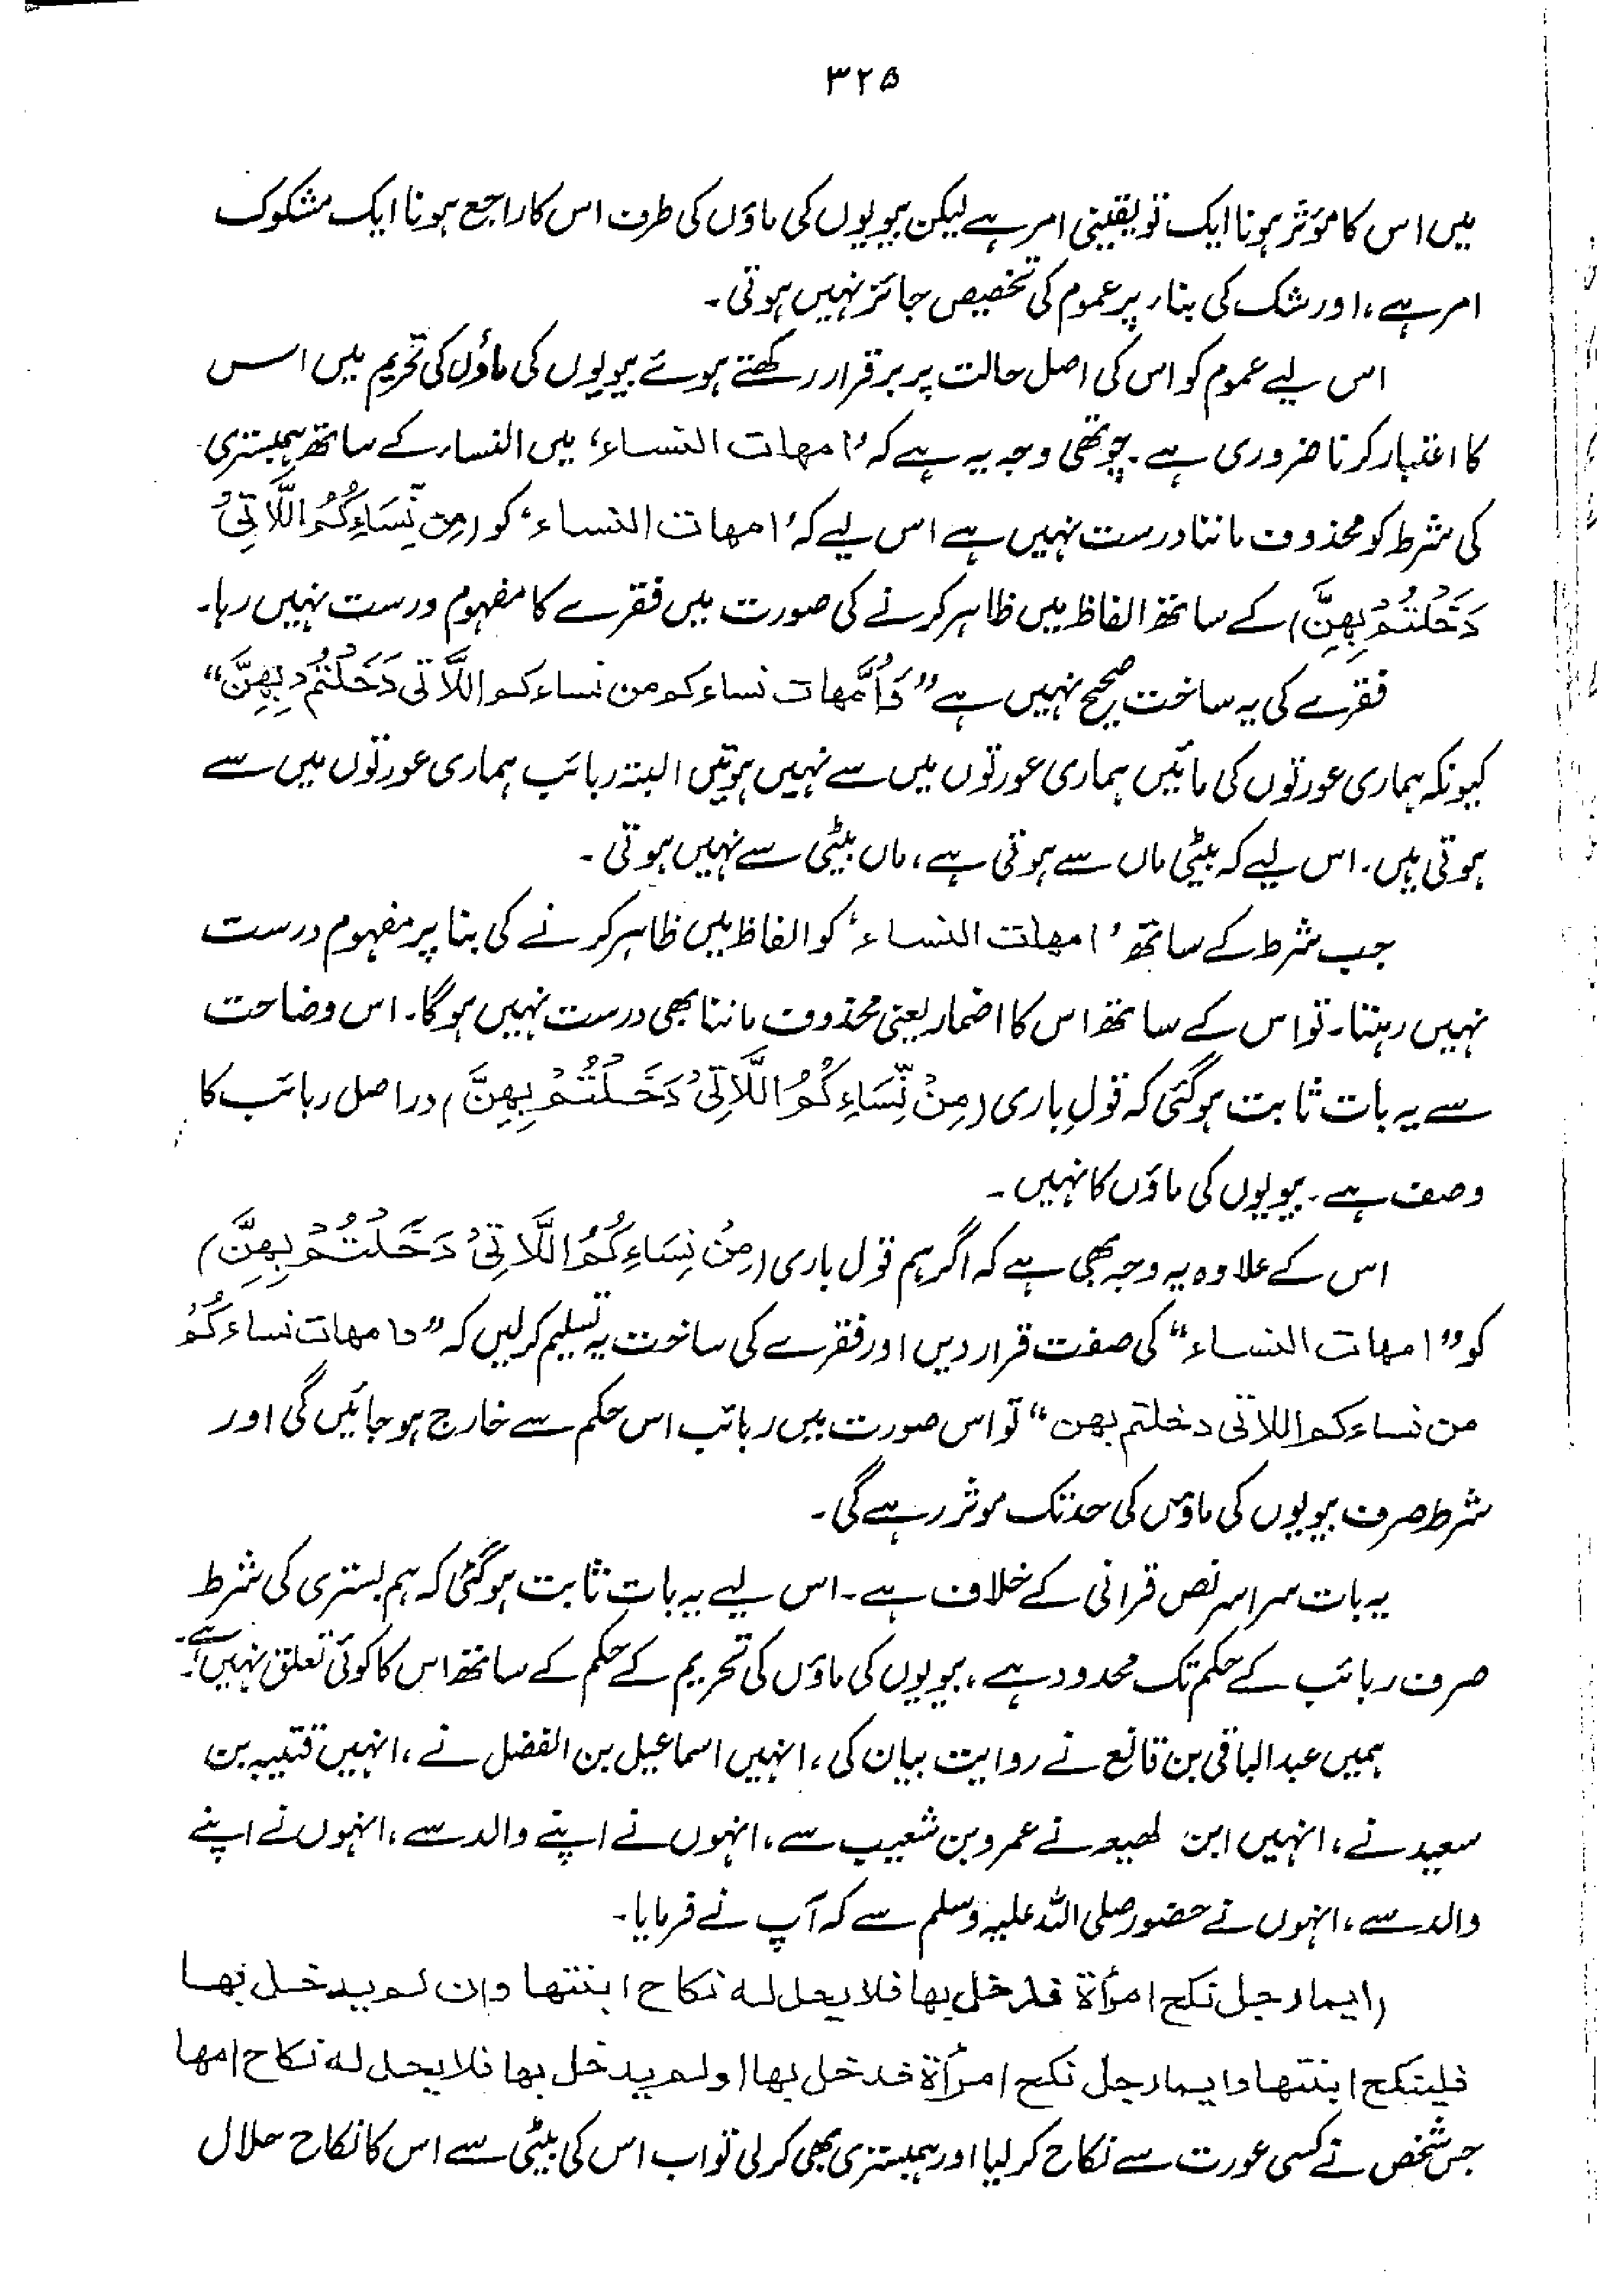 ۳۲۵
میں اس کا مؤثر ہونا ایک تو یقینی امر ہے لیکن بیویوں کی ماؤں کی طرف اس کا راجع ہونا ایک مشکوک
امر ہے، اور شک کی بناء پر عموم کی تخصیص جائز نہیں ہوتی۔
اس لیے عموم کو اس کی اصل حالت پر برقرار رکھتے ہوئے بیویوں کی ماؤں کی تحریم میں اس
کا اعتبار کرنا ضروری ہے۔ چوتھی وجہ یہ ہے کہ 'امهات النساء' میں النساء کے ساتھ ہمبستری
کی شرط کو محذوف ماننا درست نہیں ہے اس لیے کہ 'امهات النساء' کو (مِنْ نِّسَاءِكُمُ اللَّاتِیْ
دَخَلْتُمْ بِهِنَّ) کے ساتھ الفاظ میں ظاہر کرنے کی صورت میں فقرے کا مفہوم درست نہیں رہا۔
فقرے کی یہ ساخت صحیح نہیں ہے "وَأُمَّهات نساءكم من نساءكم اللَّاتی دَخَلْتُمْ بِهِنَّ"
کیونکہ ہماری عورتوں کی مائیں ہماری عورتوں میں سے نہیں ہوتیں البتہ ربائب ہماری عورتوں میں سے
ہوتی ہیں۔ اس لیے کہ بیٹی ماں سے ہوتی ہے، ماں بیٹی سے نہیں ہوتی۔
جب شرط کے ساتھ 'امهات النساء' کو الفاظ میں ظاہر کرنے کی بنا پر مفہوم درست
نہیں رہتا۔ تو اس کے ساتھ اس کا اضمار یعنی محذوف ماننا بھی درست نہیں ہوگا۔ اس وضاحت
سے یہ بات ثابت ہوگئی کہ قولِ باری (مِنْ نِّسَاءِكُمُ اللَّاتِیْ دَخَلْتُمْ بِهِنَّ) دراصل ربائب کا
وصف ہے۔ بیویوں کی ماؤں کا نہیں۔
اس کے علاوہ یہ وجہ بھی ہے کہ اگر ہم قول باری (مِنْ نِسَاءِكُمُ اللَّاتِیْ دَخَلْتُمْ بِهِنَّ)
کو "امهات النساء" کی صفت قرار دیں اور فقرے کی ساخت یہ تسلیم کرلیں کہ "وامهات نساءكُمْ
من نساءكم اللاتی دخلتم بهن" تو اس صورت میں ربائب اس حکم سے خارج ہو جائیں گی اور
شرط صرف بیویوں کی ماؤں کی حد تک موثر رہے گی۔
یہ بات سراسر نص قرانی کے خلاف ہے۔ اس لیے یہ بات ثابت ہوگئی کہ ہم بستری کی شرط
صرف ربائب کے حکم تک محدود ہے، بیویوں کی ماؤں کی تحریم کے حکم کے ساتھ اس کا کوئی تعلق نہیں ہے۔
ہمیں عبدالباقی بن قانع نے روایت بیان کی، انہیں اسماعیل بن الفضل نے، انہیں قتیبہ بن
سعید نے، انہیں ابن لھیعہ نے عمرو بن شعیب سے، انہوں نے اپنے والد سے، انہوں نے اپنے
والد سے، انہوں نے حضور صلی اللہ علیہ وسلم سے کہ آپ نے فرمایا۔
(ایما رجل نكح امرأة فدخل بها فلا یحل له نكاح ابنتها وان لم یدخل بها
فلینكح ابنتها وایما رجل نكح امرأة فدخل بها او لم یدخل بها فلا یحل له نكاح امها
جس شخص نے کسی عورت سے نکاح کر لیا اور ہمبستری بھی کر لی تو اب اس کی بیٹی سے اس کا نکاح حلال